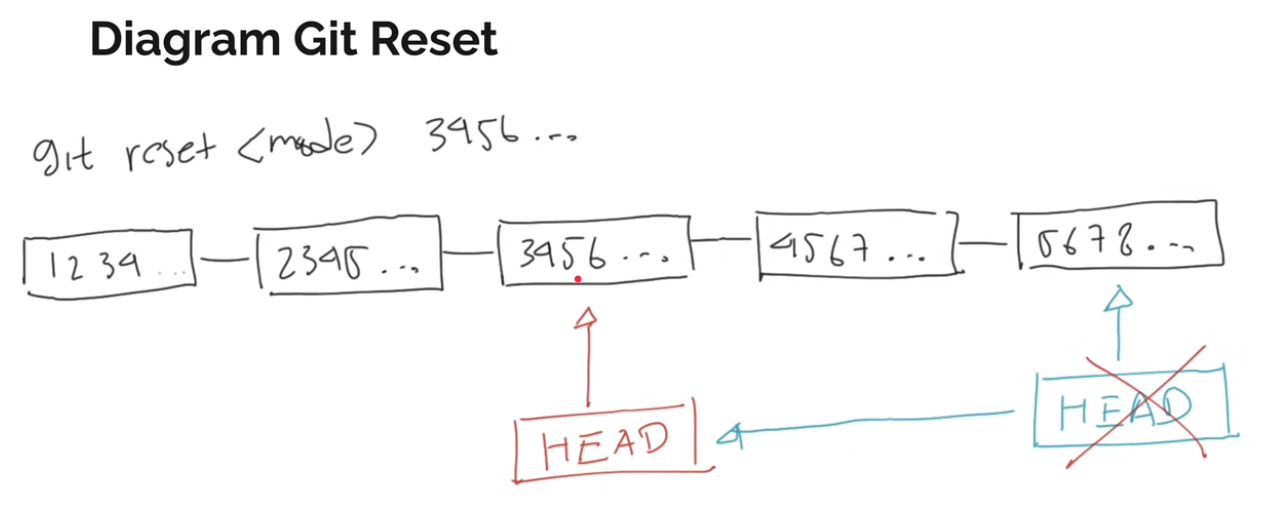 Diagram Git Reset
git reset <mode> 3456...
1234... 2345... 3456... 4567... 5678...
HEAD HEAD